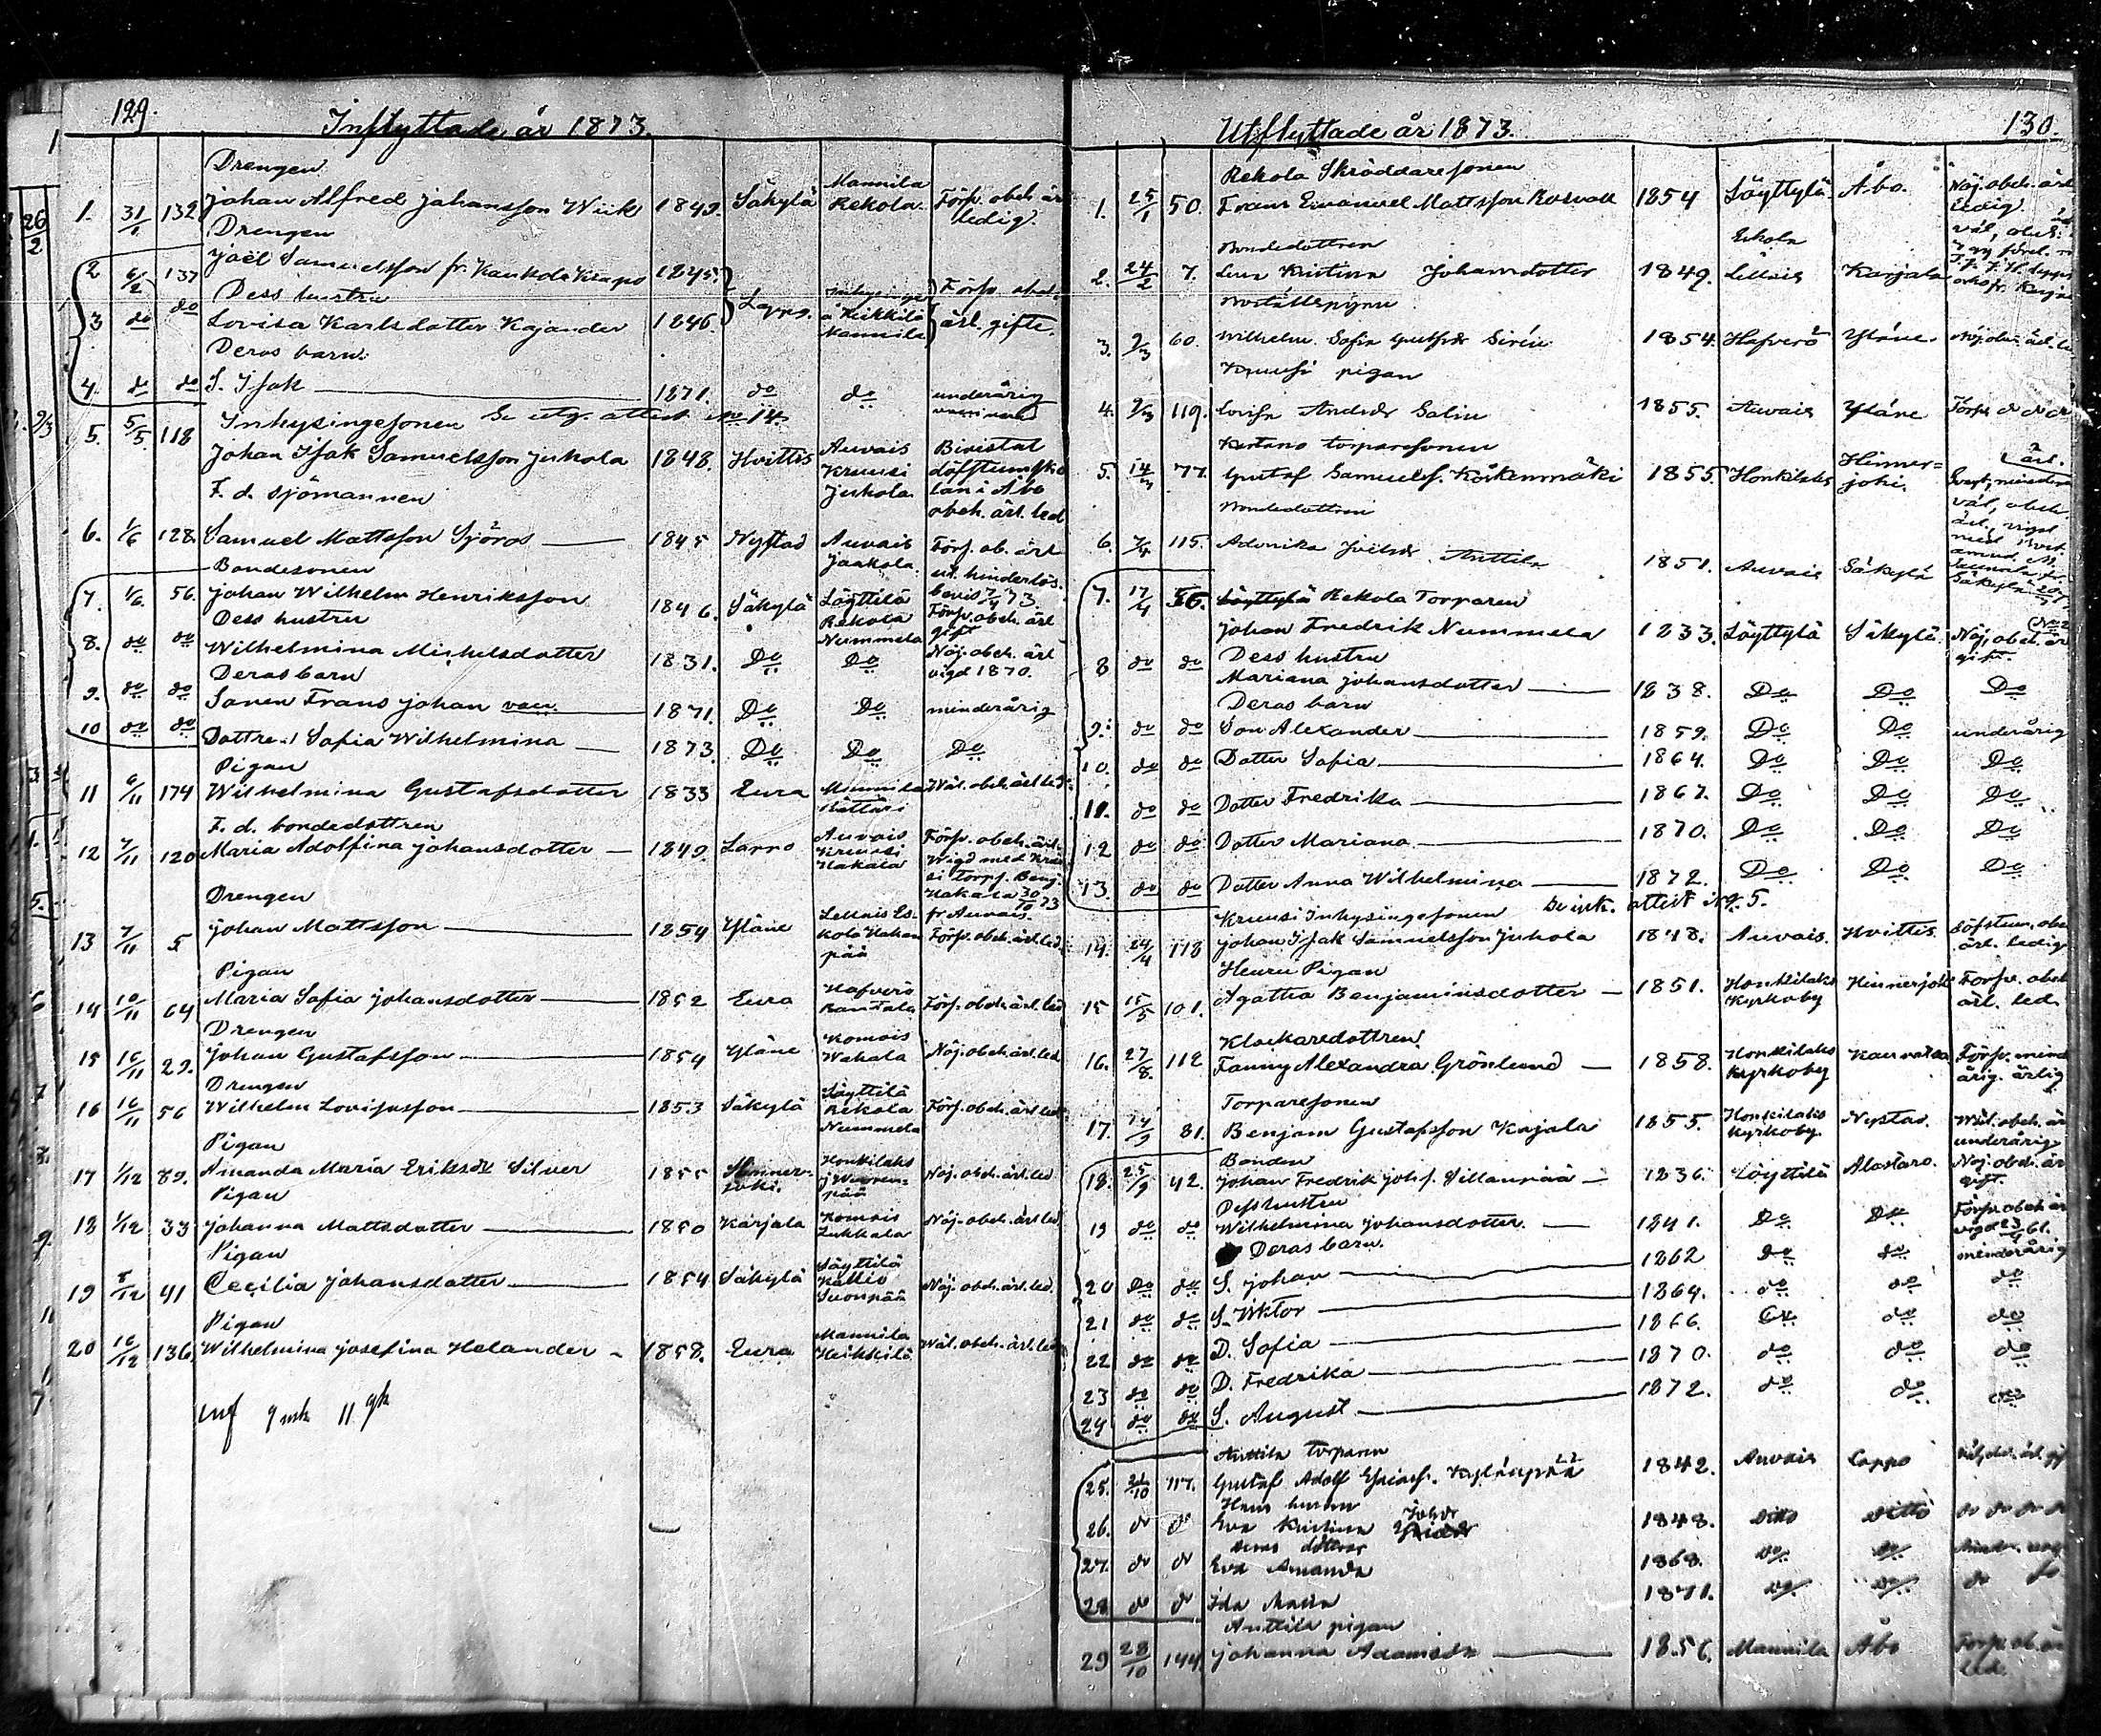 129.
Inflyttade år 1873.
Drengen
1. 31/1 132 Johan Alfred Johansson Wiik 1849. Säkylä Mannila Rekola Försv. obeh. är ledig.
Drengen
2 6/2 137 Joël Samuelsson fr. Kaukola Krapo 1845.
Dess hustru
3 do do Lovisa Karlsdotter Kajander 1846 Lappo. Inhysinge å Heikkilä Mannila Försv. obeh. ärl. gifte.
Deras barn.
4. do do S. Isak 1871. do do underårig
Inhysingesonen Se utg. attest No 14.
5. 5/5 118 Johan Isak Samuelsson Juhola 1848. Hvittis Auvais Kruusi Juhola Bivistat döfstumsko lan i Åbo obeh. ärl. led
F. d. sjömannen
6. 1/6 128. Samuel Mattsson Sjöros 1845 Nystad Auvais Jaakola. Förs. ob. ärl ut. hinderlös. bevis 7/4 73.
Bondesonen
7. 1/6. 56. Johan Wilhelm Henriksson 1846. Säkylä Löyttilä Rekola Nummela Förs. obeh. ärl gift
Dess hustru
8. do do Wilhelmina Michelsdotter 1831. Do Do Nöj. obeh. ärl vigd 1870.
Deras barn
9. do do Sonen Frans Johan 1871. Do Do minderårig
10 do do Dottren Sofia Wilhelmina 1873. Do Do Do
Pigan
11 6/11 174 Wilhelmina Gustafsdotter 1833 Eura Mannila Kättäri Wäl. obeh. ärl led.
F. d. bondedottren
12 7/11 120 Maria Adolfina Johansdotter 1849. Lappo Auvais Kruusi Hakala Förs. obeh. ärl. Wigd med Kruu si torps. Benj. Hakala 30/10 73 fr. Auvais.
Drengen
13 7/11 5 Johan Mattsson 1854 Yläne Lellais Es- kola Hakan pää Förs. obeh. ärl. led.
Pigan
14 10/11 64 Maria Sofia Johansdotter 1852 Eura Hafverö Rantala Förs. obeh. ärl. led
Drengen
15 16/11 29. Johan Gustafsson 1854 Yläne Komois Wahala Nöj. obeh. ärl. led.
Drengen
16 16/11 56 Wilhelm Lovisasson 1853 Säkylä Löyttilä Rekola Nummela Förs. obeh. ärl. led
Pigan
17 1/12 89. Amanda Maria Eriksdr Silver 1855 Hinner- joki. Honkilaks Nöj. obeh. ärl. led
Pigan
18 1/12 33 Johanna Mattsdotter 1850 Karjala Komois Lukkala Nöj. obeh. ärl. led
Pigan
19 8/12 41 Cecilia Johansdotter 1854 Säkylä Löyttilä Kallio Suonpää Nöj. obeh. ärl. led.
Pigan
20 16/12 136. Wilhelmina Josefina Helander 1858. Eura Mannila Heikkilä Wäl. obeh. ärl. led
9 mk 11
130.
Utflyttade år 1873.
Rekola Skräddaresonen
1. 25/1 50. Frans Emanuel Mattsson Rosvall 1854 Löyttylä Åbo. Nöj. obeh. ärl ledig.
Bondedottren
2. 24/2 7. Lena Kristina Johansdotter 1849. Eskola Lellais Karjala
3. 9/3 60. Wilhelm. Sofia Gustfsdr Sirén 1854. Hafverö Yläne. Nöj. obeh. ärl. le
Kruusi pigan
4. 9/3 119. Lovisa Andsdr Salin 1855. Auvais Yläne
torparesonen
5. 14/3 77. Gustaf Samuelss. Koskenmäki 1855 Honkilaks Hinner= joki.
Bondedottren
6. 7/4 115. Adonika Joelsdr Anttila 1851. Auvais Säkylä väl, obeh ärl.
7. 17/4 56. Rekola Torparen
Johan Fredrik Nummela 1833. Löyttylä Säkylä Nöj, obeh. är gift.
Dess hustru
8 do do Mariana Johansdotter 1838. Do Do Do
Deras barn
9. do do Son Alexander 1859. Do Do underårig
10. do do Dotter Sofia 1864. Do Do Do
11. do do Dotter Fredrika 1867. Do Do Do
12 do do Dotter Mariana 1870. Do Do Do
13. do do Dotter Anna Wilhelmina 1872. Do Do Do
Kruusi Inhysingesonen Se ink. attest No. 5.
14. 24/4 118 Johan Isak Samuelsson Juhola 1848. Auvais. Hvittis. Döfstum, obeh ärl. ledig
Heuru Pigan
15 15/5 101. Agatha Benjaminsdotter 1851. Honkilaks Kyrkoby Hinnerjoki Försv. obeh ärl. led.
Klockaredottren
16. 27/8. 112 Fanny Alexandra Grönlund 1858. Honkilaks Kyrkoby Kauvatsa Försv. mind årig. ärlig
Torparesonen
17. 14/9 81. Benjam Gustafsson Kajala 1855. Honkilaks Kyrkoby. Nystad. Wäl. obeh. är underårig
Bonden
18. 25/9 42. Johan Fredrik Johs. Sillanpää 1836. Löyttilä Alastaro. Nöj. obeh. är gift.
Dess hustru
19 do do Wilhelmina Johansdotter. 1841. Do Do Förs. obeh. är vigd 61.
Deras barn.
20 Do do S. Johan 1862 do do minderårig
21 do do S. Viktor 1864. do do do
22 do do D. Sofia 1866. do do do
23 do do D. Fredrika 1870. do do do
24 do do S. August 1872. do do do
Anttila torparen
25. 26/10 117. Gustaf Adolf Kylänpää 1842. Auvais Lappo
Hans hustru
26. do do Eva Kristina Johdr 1848. ditto ditto do do do do
deras döttrar
27. do do Eva Amanda 1868. do do
28 do do Ida Maria 1871. do do do do
Anttila pigan
29 28/10 144. Johanna Adamsdr 1856. Mannila Åbo Försv. ob. är led.